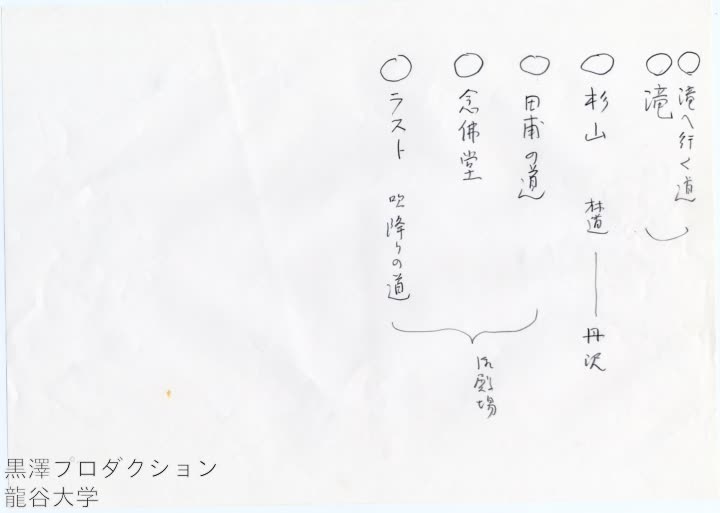 ○滝へ行く道
○滝
○杉山 林道 ― 丹沢
○田甫の道
○念佛堂
○ラスト 吹降りの道
御殿場
黒澤プロダクション
龍谷大学